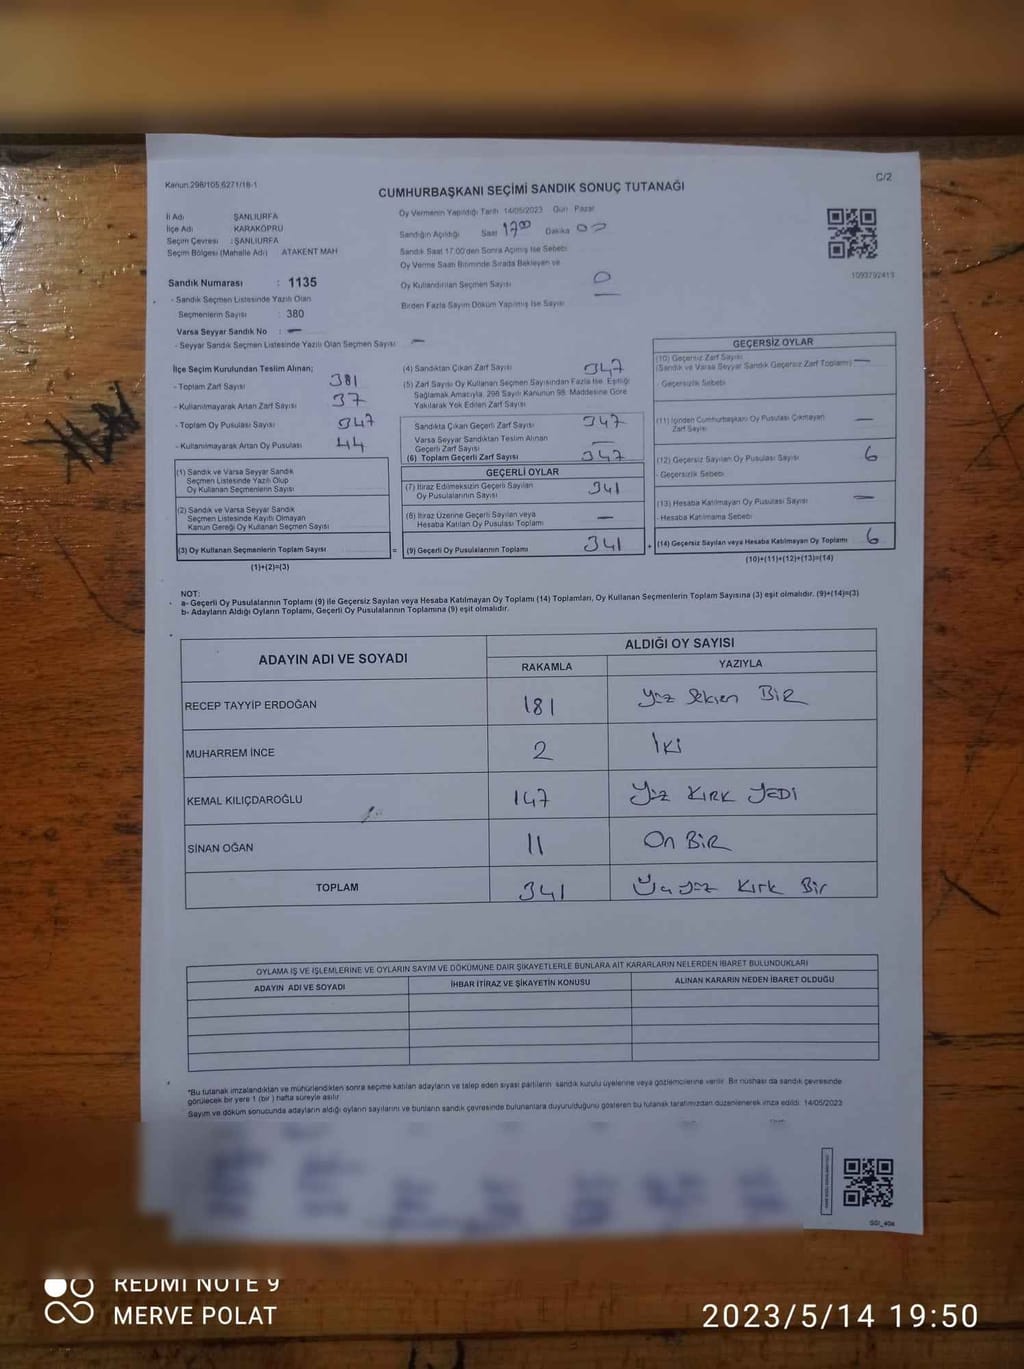 Kanun.298/105,6271/18-1
C/2
CUMHURBAŞKANI SEÇİMİ SANDIK SONUÇ TUTANAĞI
İl Adı ŞANLIURFA
İlçe Adı KARAKÖPRÜ
Seçim Çevresi : ŞANLIURFA
Seçim Bölgesi (Mahalle Adı) ATAKENT MAH
Oy Vermenin Yapıldığı Tarih 14/05/2023 Gün Pazar
Sandığın Açıldığı Saat 17 00 Dakika 00
Sandık Saat 17.00'den Sonra Açılmış İse Sebebi
Oy Verme Saati Bitiminde Sırada Bekleyen ve
Oy Kullandırılan Seçmen Sayısı 0
Birden Fazla Sayım Döküm Yapılmış İse Sayısı —
1093792413
Sandık Numarası : 1135
- Sandık Seçmen Listesinde Yazılı Olan
Seçmenlerin Sayısı : 380
Varsa Seyyar Sandık No : —
- Seyyar Sandık Seçmen Listesinde Yazılı Olan Seçmen Sayısı —
İlçe Seçim Kurulundan Teslim Alınan;
- Toplam Zarf Sayısı 381
- Kullanılmayarak Artan Zarf Sayısı 37
- Toplam Oy Pusulası Sayısı 347
- Kullanılmayarak Artan Oy Pusulası 44
(1) Sandık ve Varsa Seyyar Sandık
Seçmen Listesinde Yazılı Olup
Oy Kullanan Seçmenlerin Sayısı
(2) Sandık ve Varsa Seyyar Sandık
Seçmen Listesinde Kayıtlı Olmayan
Kanun Gereği Oy Kullanan Seçmen Sayısı
(3) Oy Kullanan Seçmenlerin Toplam Sayısı =
(1)+(2)=(3)
(4) Sandıktan Çıkan Zarf Sayısı 347
(5) Zarf Sayısı Oy Kullanan Seçmen Sayısından Fazla İse, Eşitliği
Sağlamak Amacıyla, 298 Sayılı Kanunun 98. Maddesine Göre
Yakılarak Yok Edilen Zarf Sayısı
Sandıkta Çıkan Geçerli Zarf Sayısı 347
Varsa Seyyar Sandıktan Teslim Alınan
Geçerli Zarf Sayısı —
(6) Toplam Geçerli Zarf Sayısı 347
GEÇERLİ OYLAR
(7) İtiraz Edilmeksizin Geçerli Sayılan
Oy Pusulalarının Sayısı 341
(8) İtiraz Üzerine Geçerli Sayılan veya
Hesaba Katılan Oy Pusulası Toplamı —
(9) Geçerli Oy Pusulalarının Toplamı 341 +
GEÇERSİZ OYLAR
(10) Geçersiz Zarf Sayısı
(Sandık ve Varsa Seyyar Sandık Geçersiz Zarf Toplamı) —
- Geçersizlik Sebebi
(11) İçinden Cumhurbaşkanı Oy Pusulası Çıkmayan
Zarf Sayısı —
(12) Geçersiz Sayılan Oy Pusulası Sayısı 6
- Geçersizlik Sebebi
(13) Hesaba Katılmayan Oy Pusulası Sayısı —
- Hesaba Katılmama Sebebi
(14) Geçersiz Sayılan veya Hesaba Katılmayan Oy Toplamı 6
(10)+(11)+(12)+(13)=(14)
NOT:
a- Geçerli Oy Pusulalarının Toplamı (9) ile Geçersiz Sayılan veya Hesaba Katılmayan Oy Toplamı (14) Toplamları, Oy Kullanan Seçmenlerin Toplam Sayısına (3) eşit olmalıdır. (9)+(14)=(3)
b- Adayların Aldığı Oyların Toplamı, Geçerli Oy Pusulalarının Toplamına (9) eşit olmalıdır.
ADAYIN ADI VE SOYADI
ALDIĞI OY SAYISI
RAKAMLA YAZIYLA
RECEP TAYYİP ERDOĞAN 181 Yüz Seksen BİR
MUHARREM İNCE 2 İki
KEMAL KILIÇDAROĞLU 147 Yüz KIRK YEDİ
SİNAN OĞAN 11 On BİR
TOPLAM 341 Üç yüz Kırk Bir
OYLAMA İŞ VE İŞLEMLERİNE VE OYLARIN SAYIM VE DÖKÜMÜNE DAİR ŞİKAYETLERLE BUNLARA AİT KARARLARIN NELERDEN İBARET BULUNDUKLARI
ADAYIN ADI VE SOYADI İHBAR İTİRAZ VE ŞİKAYETİN KONUSU ALINAN KARARIN NEDEN İBARET OLDUĞU
*Bu tutanak imzalandıktan ve mühürlendikten sonra seçime katılan adayların ve talep eden siyasi partilerin sandık kurulu üyelerine veya gözlemcilerine verilir. Bir nüshası da sandık çevresinde
görülecek bir yere 1 (bir) hafta süreyle asılır
Sayım ve döküm sonucunda adayların aldığı oyların sayılarını ve bunların sandık çevresinde bulunanlara duyurulduğunu gösteren bu tutanak tarafımızdan düzenlenerek imza edildi. 14/05/2023
REDMI NOTE 9
MERVE POLAT
2023/5/14 19:50